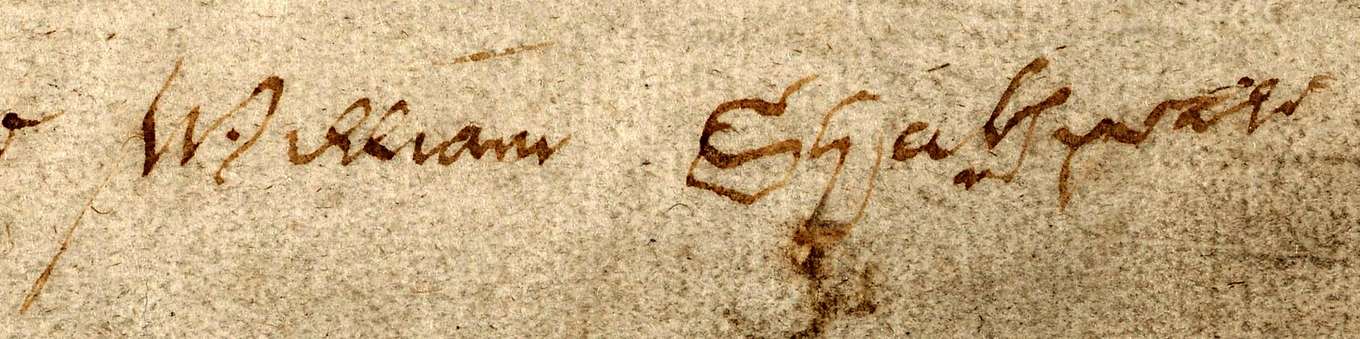 William Shakspeare